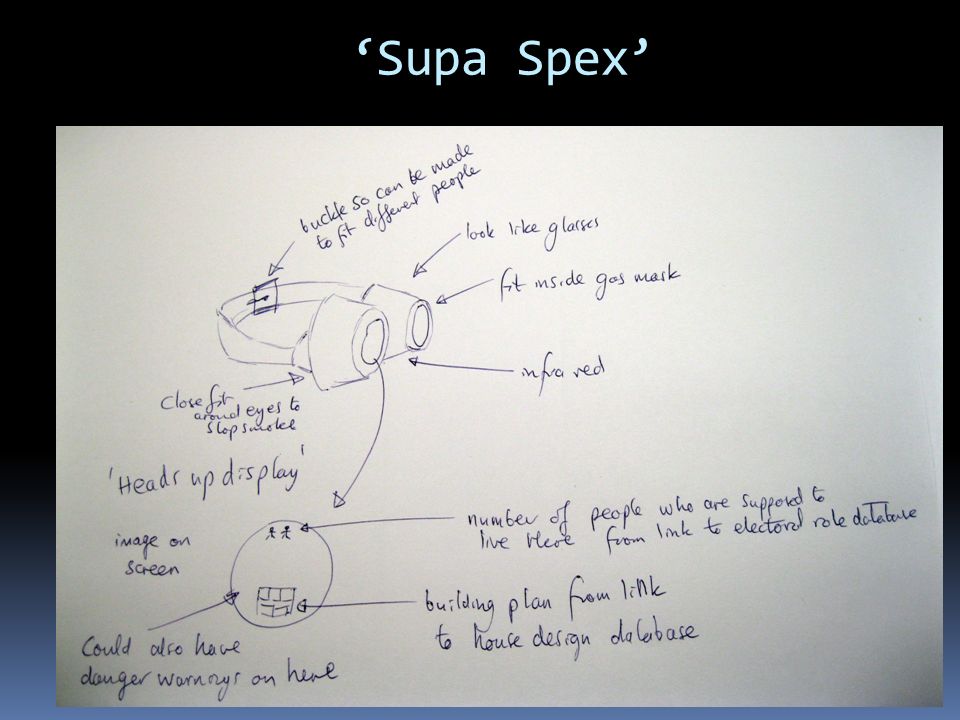 ‘Supa Spex’
buckle so can be made
to fit different people
look like glasses
fit inside gas mask
infra red
Close fit
around eyes to
stop smoke
'Heads up display'
image on
screen
number of people who are supposed to
live there from link to electoral role database
building plan from link
to house design database
Could also have
danger warnings on here